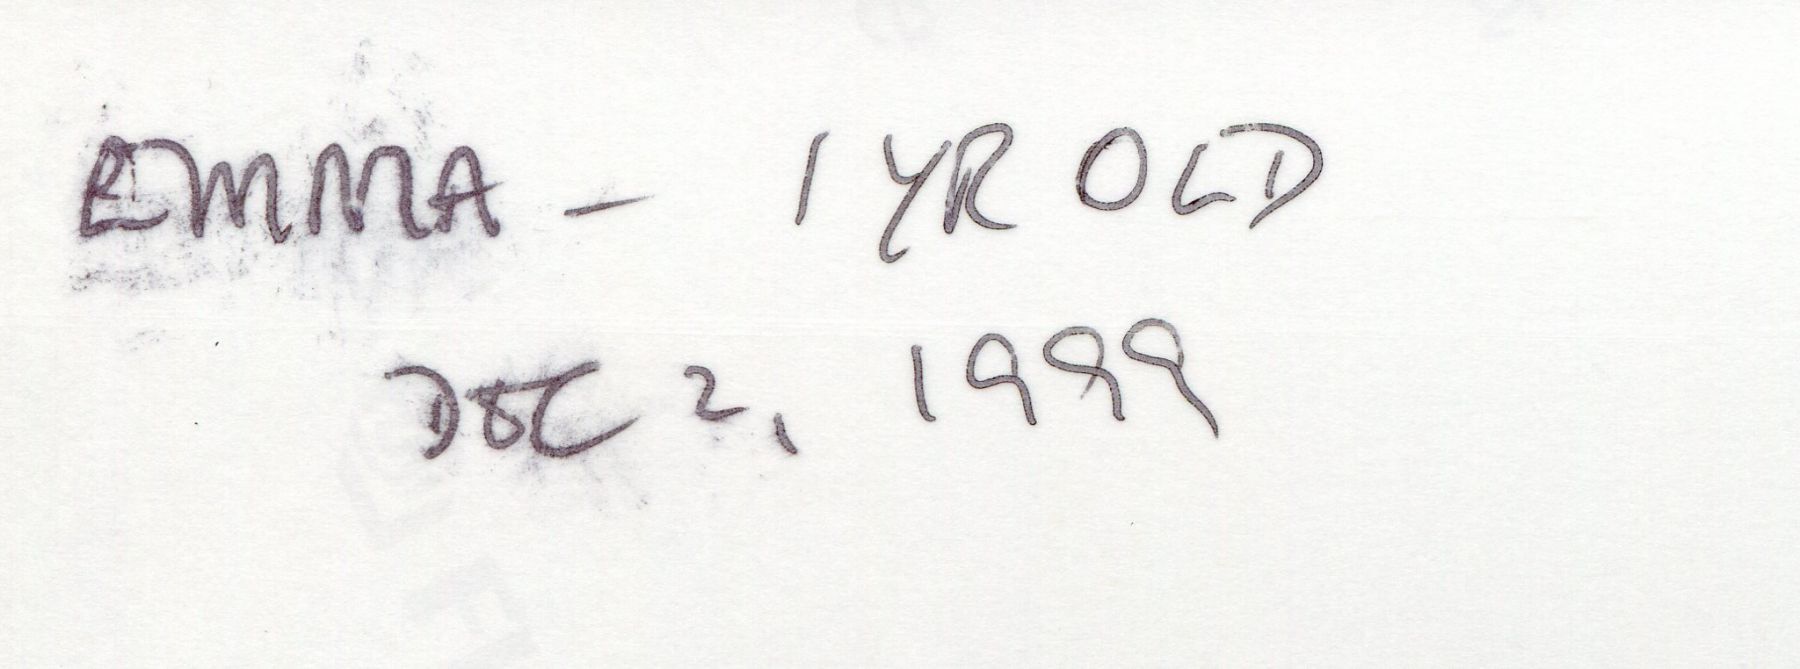 EMMA - 1 YR OLD
DEC 2, 1999